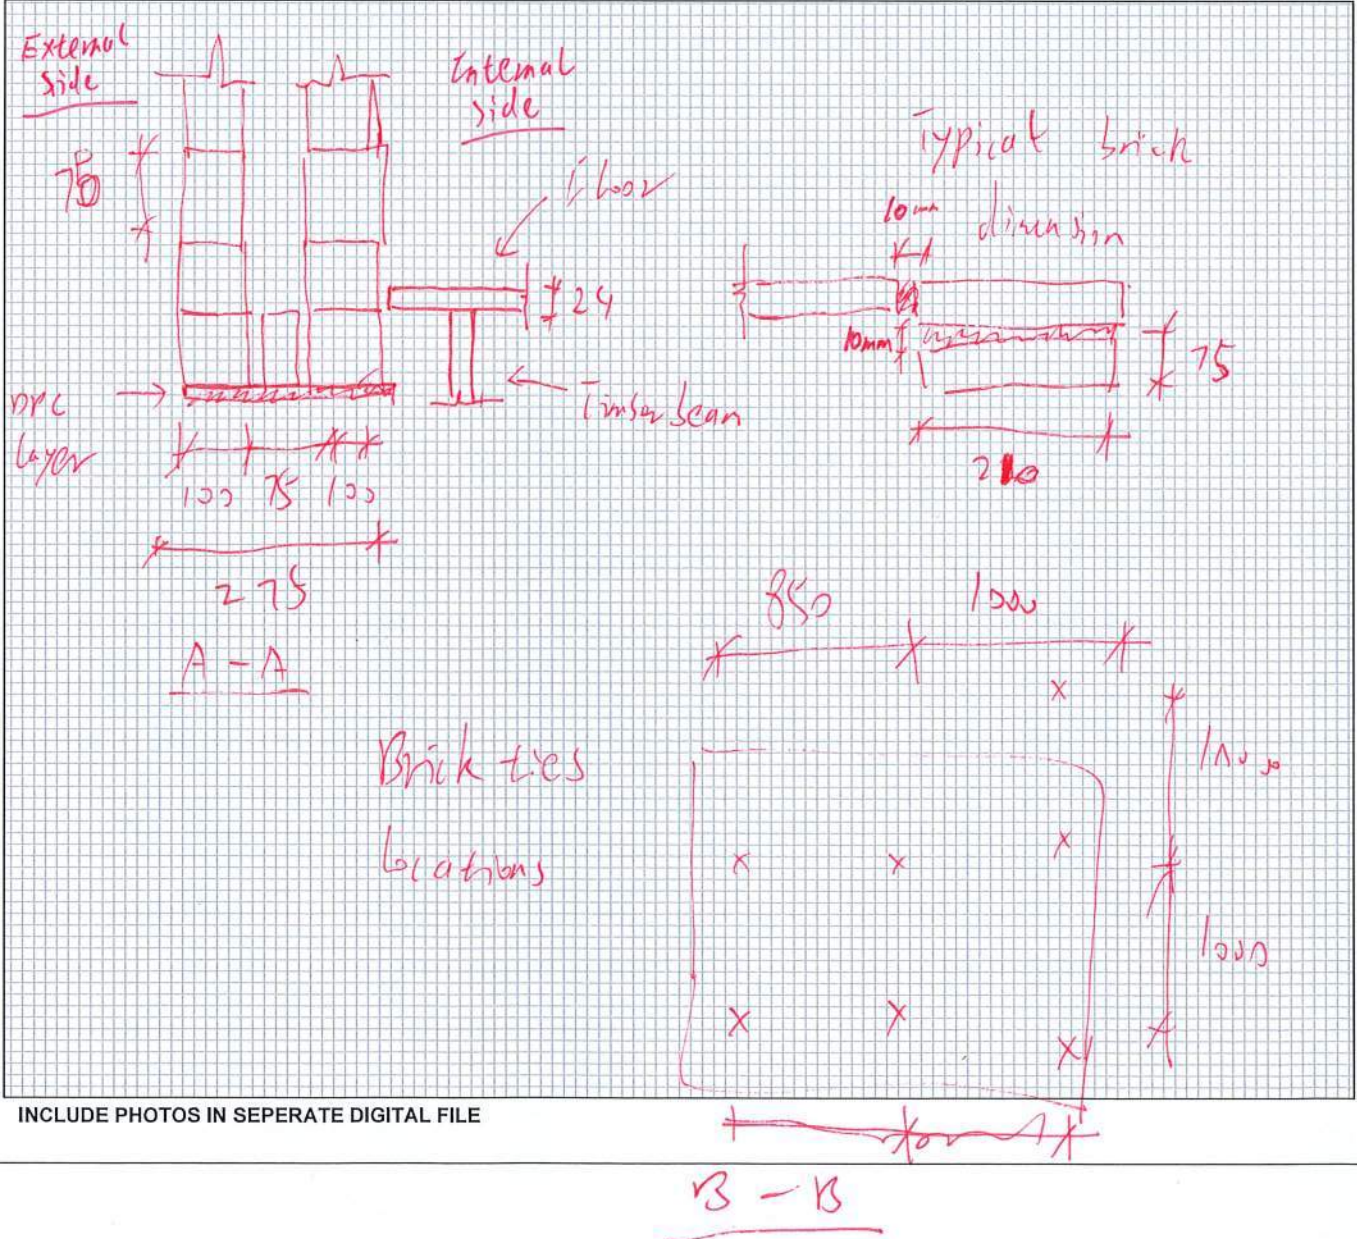 External
side
Internal
side
75
floor
24
DPC
layer
Timber beam
100 75 100
275
A - A
Typical brick
dimension
10mm
10mm
75
210
850 1000
Brick ties
locations
1000
1000
INCLUDE PHOTOS IN SEPERATE DIGITAL FILE
B - B